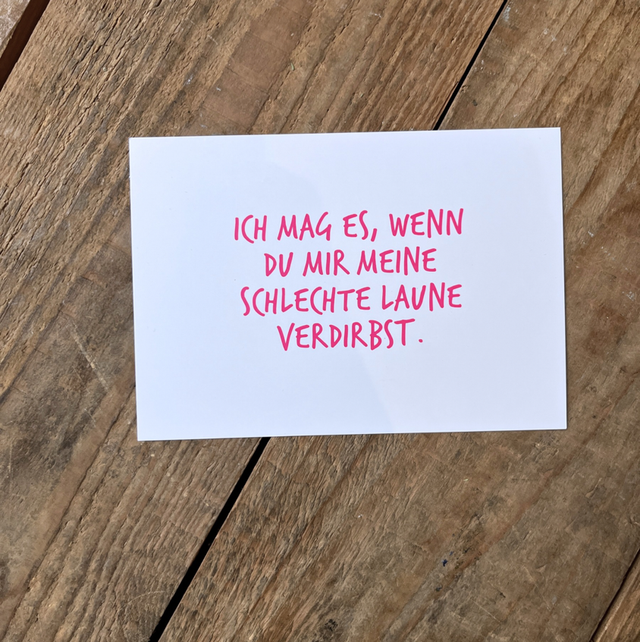 ICH MAG ES, WENN
DU MIR MEINE
SCHLECHTE LAUNE
VERDIRBST.